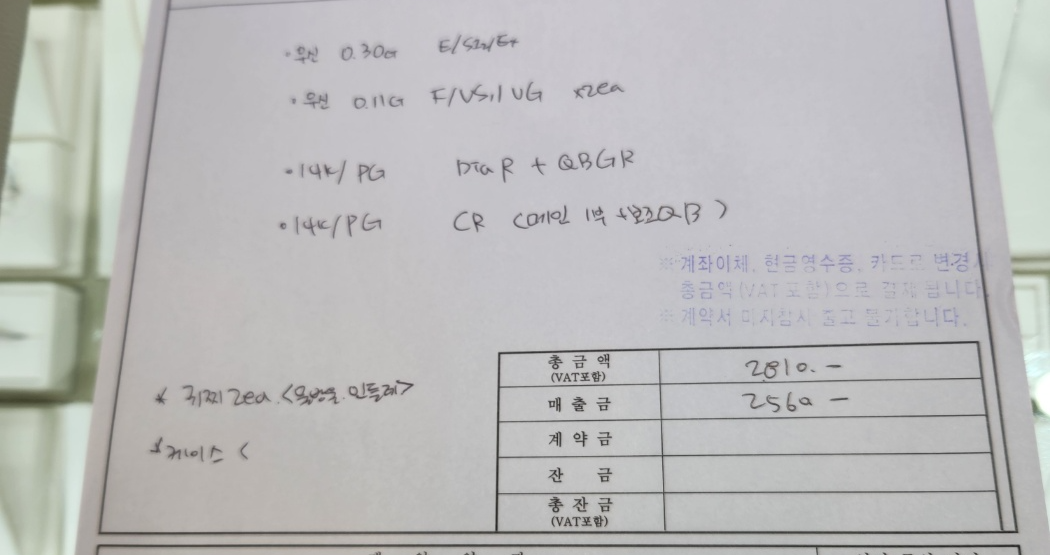 · 우신 0.30ct E/SI2/Ex
· 우신 0.11G F/VS1/VG x2ea
· 14K/PG Dia R + QBGR
· 14K/PG CR (메인 1부 + 보조QB)
※ 계좌이체, 현금영수증, 카드로 변경시
총금액(VAT포함)으로 결제 됩니다.
※ 계약서 미지참시 출고 불가합니다.
총금액 2810.-
(VAT포함)
매출금 2560 -
* 귀찌 2ea <물방울. 민들레>
계약금
* 케이스 <
잔금
총잔금
(VAT포함)